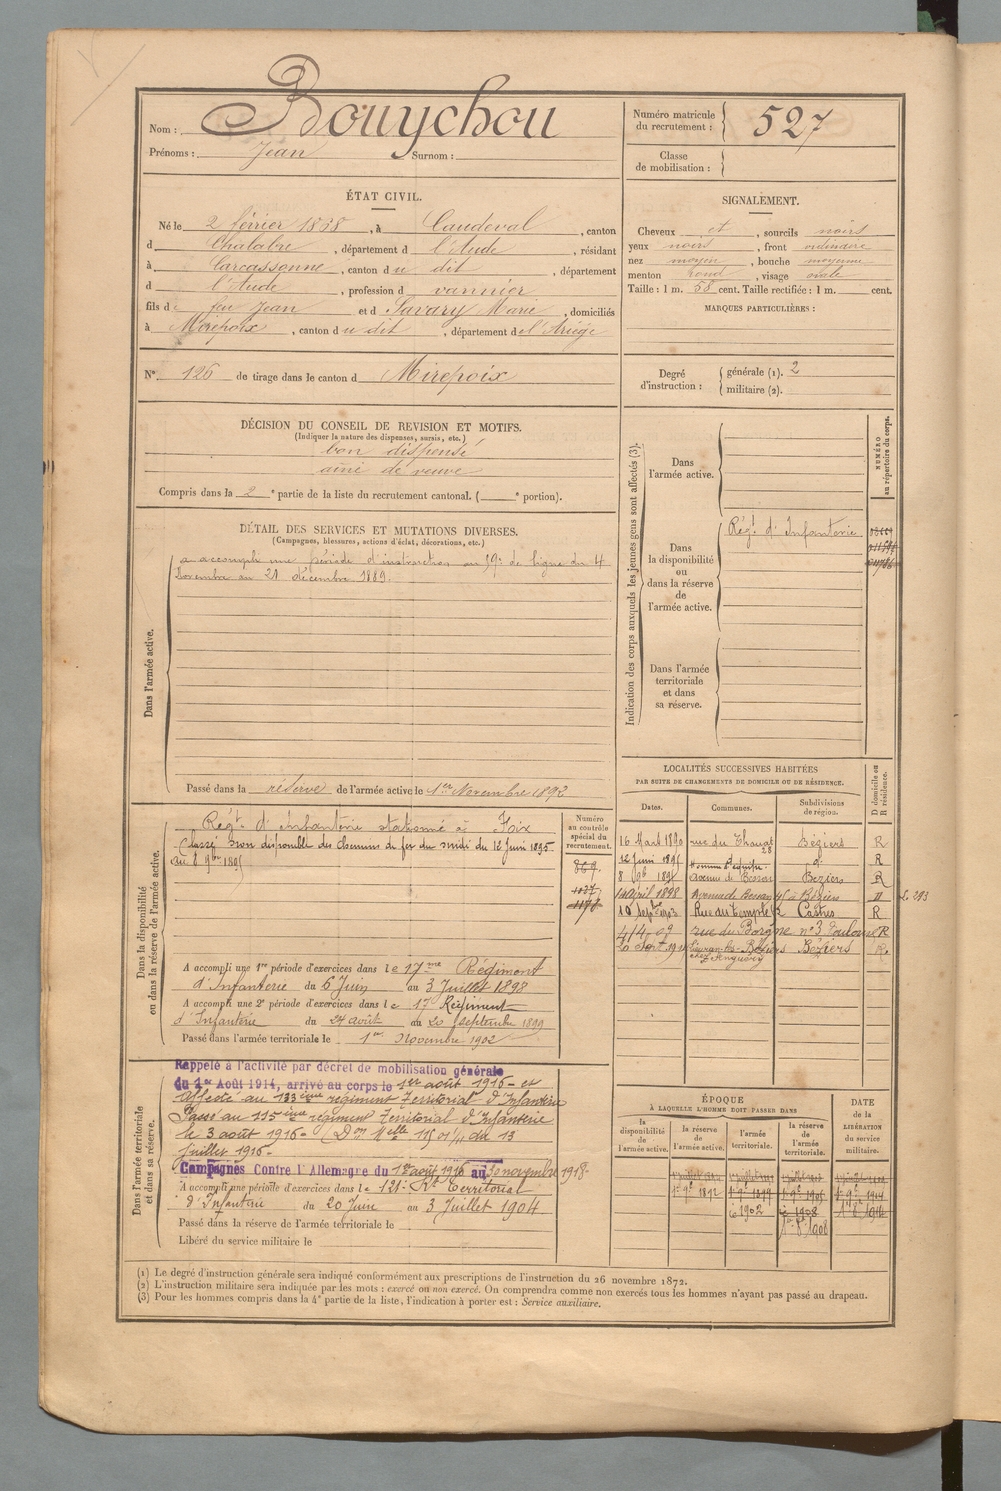 Nom : Bouychou
Prénoms : Jean Surnom :
Numéro matricule du recrutement : 527
Classe de mobilisation :
ÉTAT CIVIL.
Né le 2 février 1868, à Caudeval, canton
d Chalabre, département d l'Aude, résidant
à Carcassonne, canton du dit, département
d l'Aude, profession d vannier
fils de feu Jean et d Savary Marie, domiciliés
à Mirepoix, canton du dit, département de l'Ariège
SIGNALEMENT.
Cheveux et, sourcils noirs
yeux noirs, front ordinaire
nez moyen, bouche moyenne
menton rond, visage ovale
Taille : 1 m. 58 cent. Taille rectifiée : 1 m. cent.
MARQUES PARTICULIÈRES :
N° 126 de tirage dans le canton d Mirepoix
Degré d'instruction : générale (1). 2
militaire (2).
DÉCISION DU CONSEIL DE REVISION ET MOTIFS.
(Indiquer la nature des dispenses, sursis, etc.)
bon dispensé
aîné de veuve
Compris dans la 2e partie de la liste du recrutement cantonal. (e portion).
DÉTAIL DES SERVICES ET MUTATIONS DIVERSES.
(Campagnes, blessures, actions d'éclat, décorations, etc.)
Dans l'armée active.
a accompli une période d'instruction au 59e de ligne du 4
Novembre au 21 décembre 1889.
Passé dans la réserve de l'armée active le 1er Novembre 1892
Indication des corps auxquels les jeunes gens sont affectés (3).
NUMÉRO au répertoire du corps.
Dans l'armée active.
Dans la disponibilité ou dans la réserve de l'armée active.
Régt d'Infanterie
Dans l'armée territoriale et dans sa réserve.
LOCALITÉS SUCCESSIVES HABITÉES
PAR SUITE DE CHANGEMENTS DE DOMICILE OU DE RÉSIDENCE.
Dates. Communes. Subdivisions de région. D domicile ou R résidence.
16 Mars 1890 rue du 28 Béziers R
12 Juin 1895 R
8 9b 1895 Avenue de Bessan Béziers R
14 avril 1898 Avenue de Bessan 45 à Béziers
10 Septbre 1903 Rue du Temple 12 Castres R
4/4 09 rue du Borgne n° 3 Toulouse R
Béziers R
Dans la disponibilité ou dans la réserve de l'armée active.
Numéro au contrôle spécial du recrutement.
869
1037
1178
Régt d'Infanterie stationné à Foix
Classé non disponible des Chemins de fer du midi du 12 Juin 1895
au 8 9bre 1895
A accompli une 1re période d'exercices dans le 17me Régiment
d'Infanterie du 6 Juin au 3 Juillet 1898
A accompli une 2e période d'exercices dans le 17e Régiment
d'Infanterie du 24 août au 20 septembre 1899
Passé dans l'armée territoriale le 1er Novembre 1902
Dans l'armée territoriale et dans sa réserve.
Rappelé à l'activité par décret de mobilisation générale
du 1er Août 1914, arrivé au corps le 1er août 1916 - et
Affecté au 133ème régiment Territorial d'Infanterie
Passé au 115ème régiment Territorial d'Infanterie
le 3 août 1916 - du 13
Juillet 1916 -
Campagnes Contre l'Allemagne du 1er août 1916 au 30 novembre 1918 -
A accompli une période d'exercices dans le 121e Rt Territorial
d'Infanterie du 20 Juin au 3 Juillet 1904
Passé dans la réserve de l'armée territoriale le
Libéré du service militaire le
ÉPOQUE
À LAQUELLE L'HOMME DOIT PASSER DANS
la disponibilité de l'armée active. la réserve de l'armée active. l'armée territoriale. la réserve de l'armée territoriale. DATE DE LA LIBÉRATION du service militaire.
(1) Le degré d'instruction générale sera indiqué conformément aux prescriptions de l'instruction du 26 novembre 1872.
(2) L'instruction militaire sera indiquée par les mots : exercé ou non exercé. On comprendra comme non exercés tous les hommes n'ayant pas passé au drapeau.
(3) Pour les hommes compris dans la 4e partie de la liste, l'indication à porter est : Service auxiliaire.